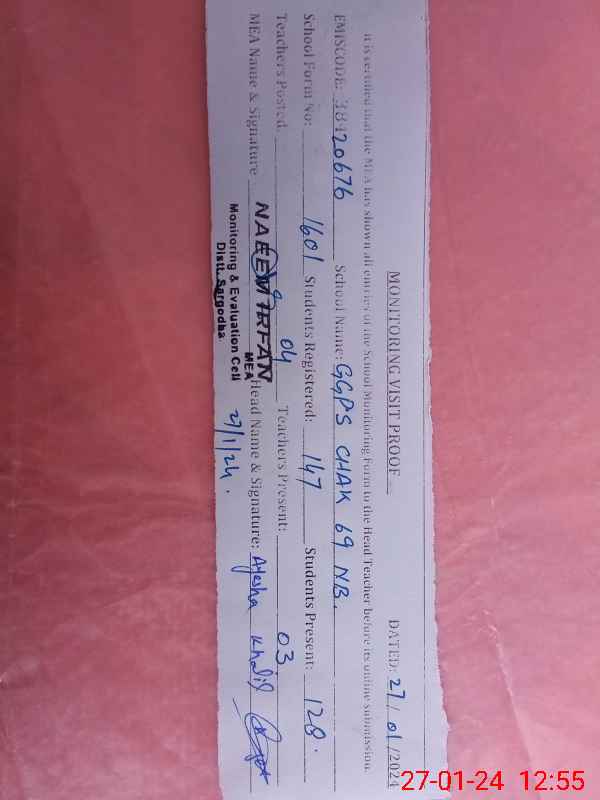 MONITORING VISIT PROOF
DATED: 27/01/2024
It is certified that the MEA has shown all entries of the School Monitoring Form to the Head Teacher before its online submission.
EMISCODE: 38420676 School Name: GGPS CHAK 69 NB.
School Form No: 1601 Students Registered: 147 Students Present: 128.
Teachers Posted: 04 Teachers Present: 03
MEA Name & Signature NAEEM IRFAN Head Name & Signature: Ayesha Khalil
MEA
Monitoring & Evaluation Cell
Distt. Sargodha
27/1/24.
27-01-24 12:55